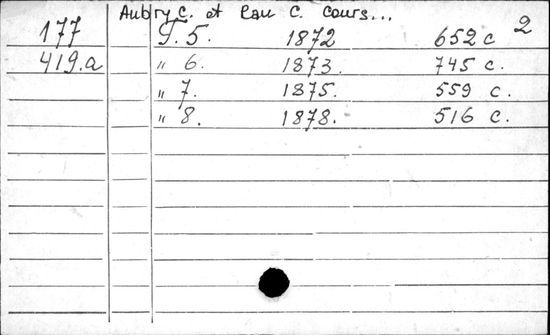 Aubry C. et Rau C. Cours...
2
177 T. 5. 1872 652 c
419.a " 6. 1873. 745 c.
" 7. 1875. 559 c.
" 8. 1878. 516 c.